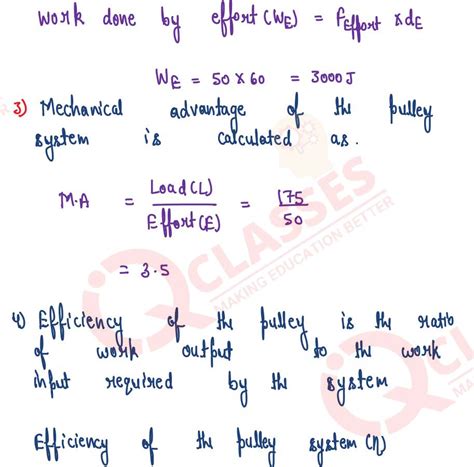 work done by effort (WE) = Feffort x dE
WE = 50 x 60 = 3000J
3) Mechanical advantage of the pulley
system is calculated as.
M.A = Load(L) / Effort(E) = 175 / 50
= 3.5
4) Efficiency of the pulley is the ratio
of work output to the work
input required by the system
Efficiency of the pulley system (η)
CLASSES
MAKING EDUCATION BETTER